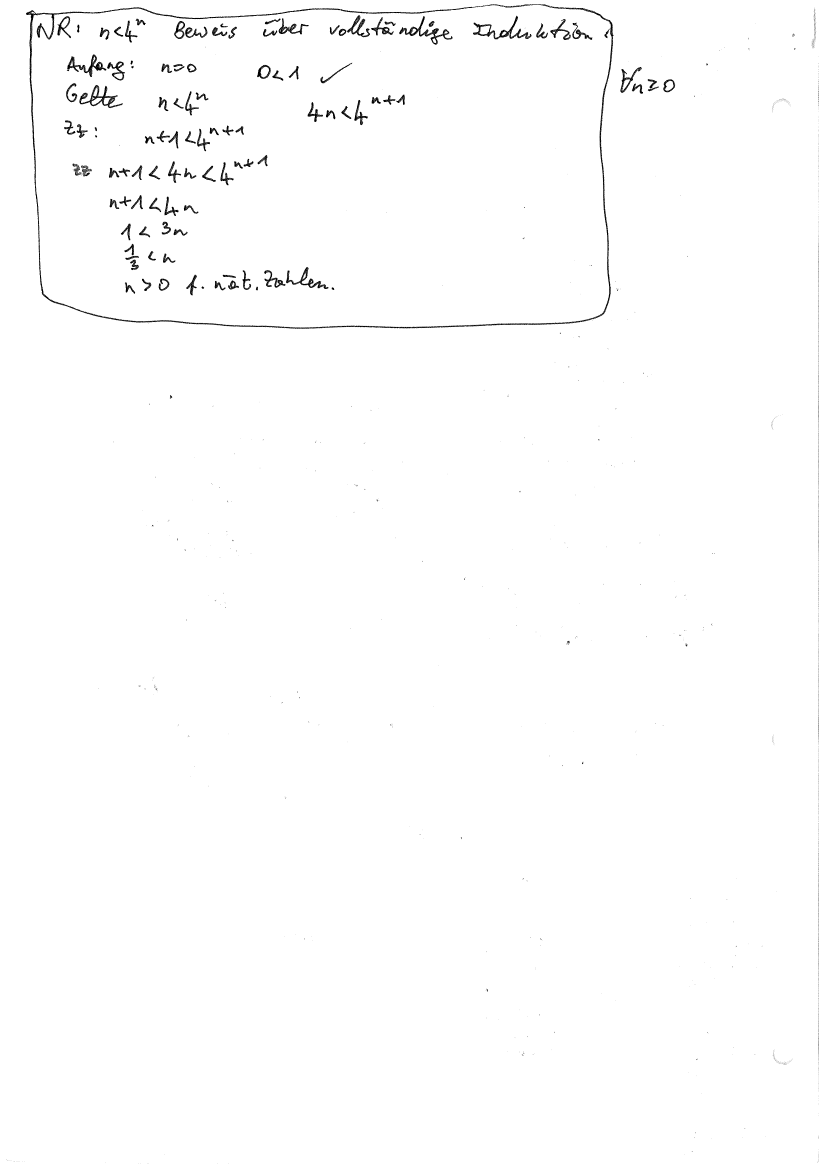 NR: n<4ⁿ Beweis über vollständige Induktion.
Anfang: n=0 0<1 ✓
∀n≥0
Gelte n<4ⁿ 4n<4ⁿ⁺¹
Zz: n+1<4ⁿ⁺¹
zz n+1<4n<4ⁿ⁺¹
n+1<4n
1<3n
1/3<n
n>0 f. nat. Zahlen.